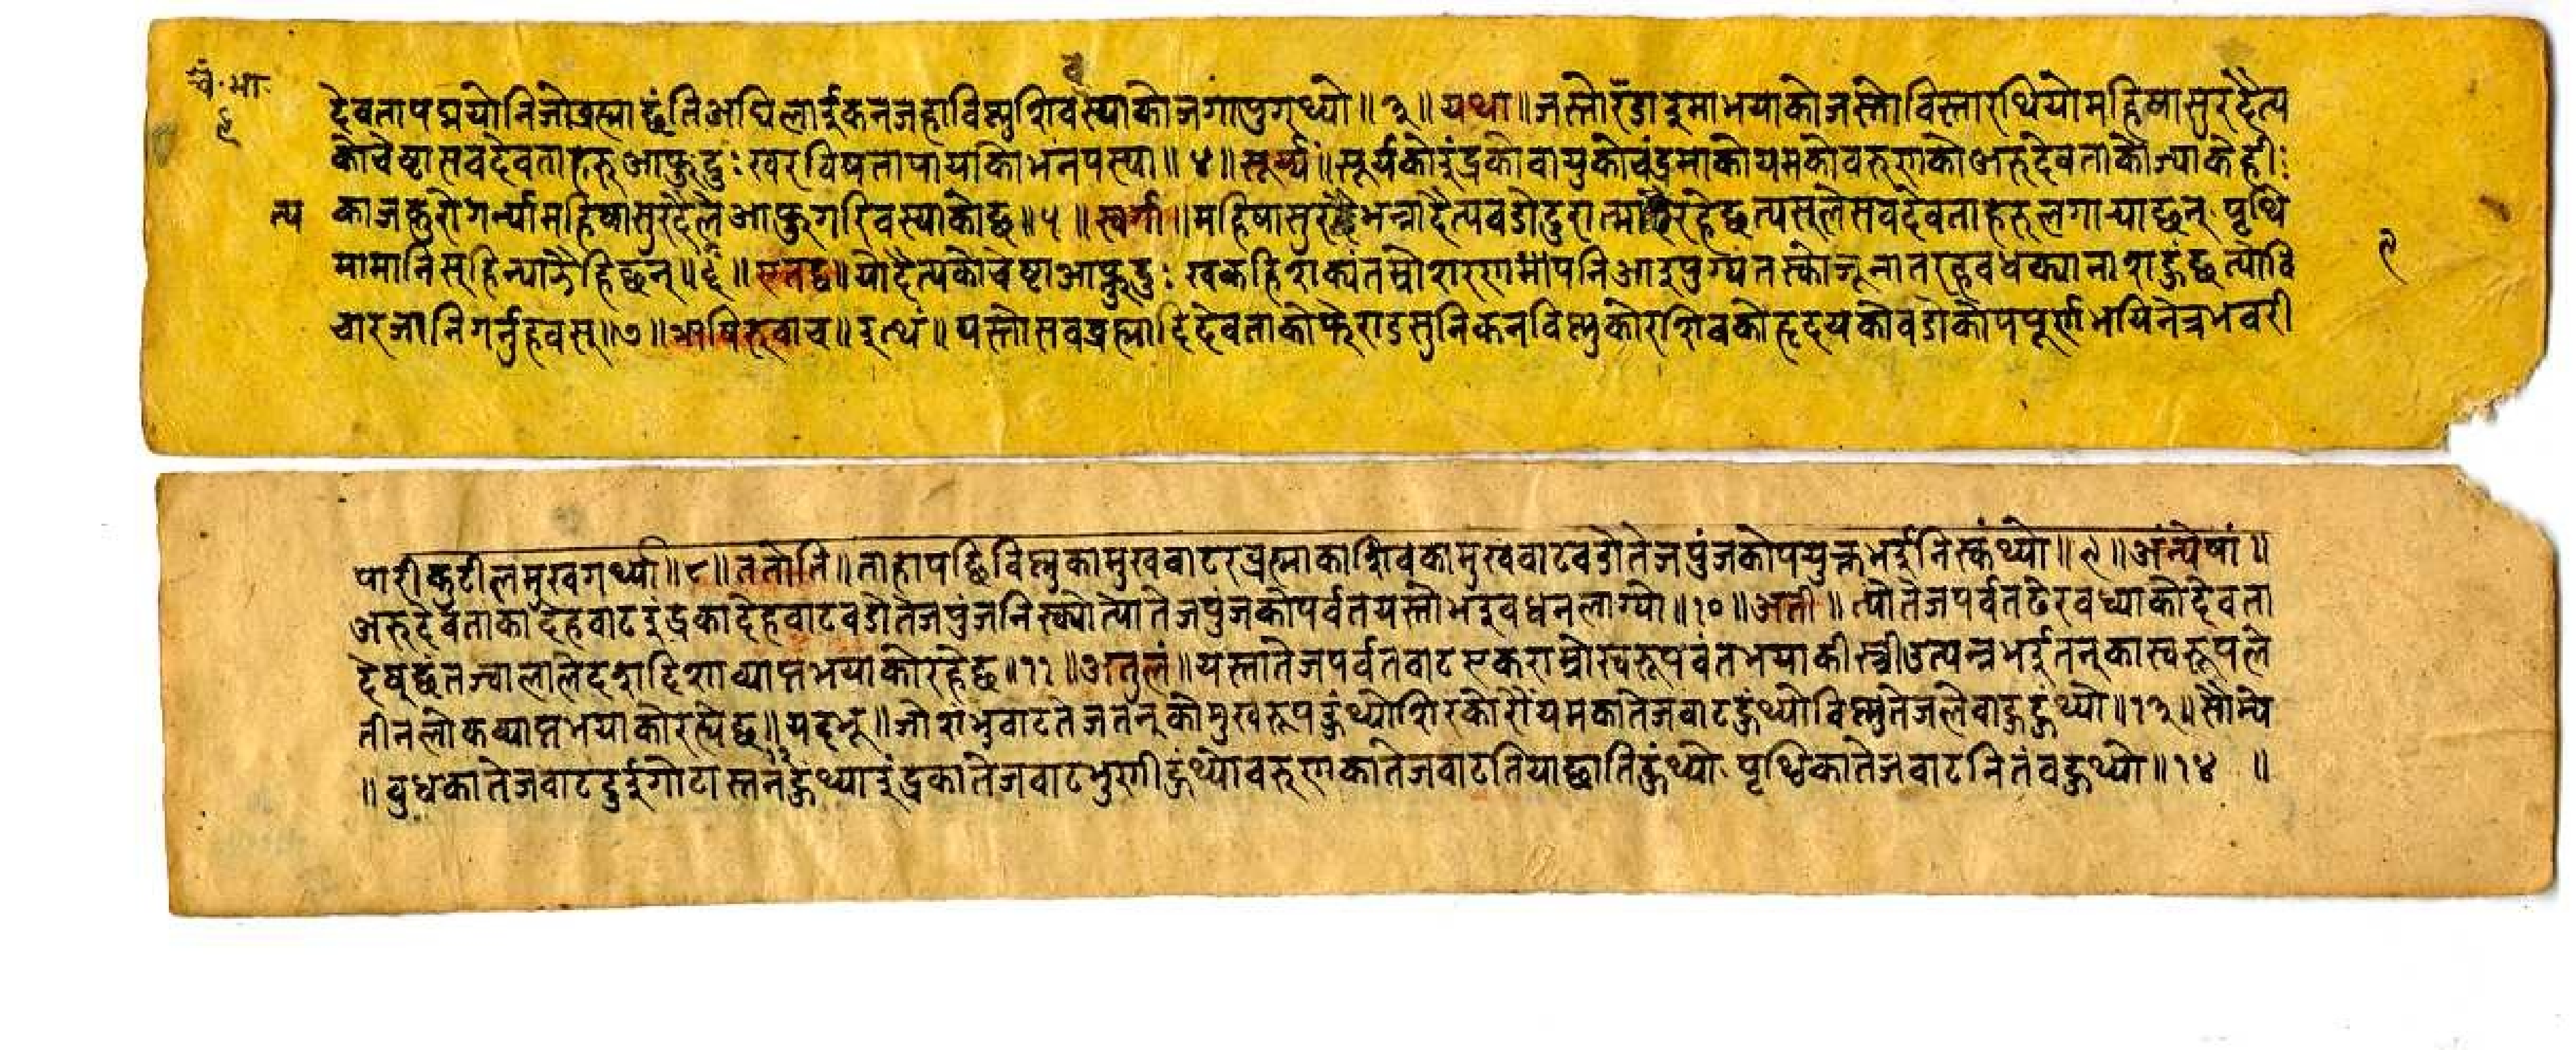 चं.भा.
९
देवतापद्मयोनिजोव्रह्माछंतिअघिलाईकनजहाविष्णुशिवस्याकोजगांपुगथ्यो॥३॥यथा॥जस्तोरंडाइमाभयाकोजस्तोविस्तारथियोमहिषासुरदैत्य
कोचेष्टासवदेवताहरुआफ्नुदुःखरविषतापायकोभंनपस्या॥४॥सूर्य्यं॥सूर्यकोइंद्रकोवायुकोचंद्रमाकोयमकोवरुणकोअरुदेवताकोज्याकेहीः
त्य काजकुरोगर्न्यामहिषासुरदैलेआफ्नुगरिवस्याकोछ॥५॥स्वर्गा॥महिषासुरभन्नादैत्यवडोदुरात्मारहेछत्यसूलेसवदेवताहरुलगायाछन्पृथि
मामानिसूहिन्याझैहिछन्॥६॥एतद्व॥योदैत्यकोचेष्टाआफ्नुदुःखकहिशक्यंतम्रोशरणमोंपनिआइपुग्यंतस्कोजूनातरह्लवधक्यानाशहुंछत्योवि
चारजोनिगर्नुहवस्॥७॥ऋषिरुवाच॥इत्थं॥यस्तोसवव्रह्मादिदेवताकोफैरादसुनिकनविष्णुकोरशिवकोहृदयकोवडाकोपपूर्णभयिनेत्रभवरी
९
पारीकुटीलमुखगर्थ्या॥८॥ततोति॥ताहापछिविष्णुकामुखवाटरव्रह्माकाशिवकामुखवाटवडोतेजपुंजकोपयुक्तभईनिस्कंथ्यो॥९॥अंन्येषां॥
अरुदेवताकादेहवाटइंद्रकादेहवाटवडोतेजपुंजनिस्क्योत्योतेजपुंजकोपर्वतयस्तोभइवधनलाग्यो॥१०॥अती॥त्योतेजपर्वतढेरवध्याकोदेवता
देषछंतज्वालालेदशदिशाव्याप्तभयाकोरहेछ॥११॥अतुलं॥यस्तातेजपर्वतवाटएकराम्रोस्वरूपवंतभयाकीस्त्रीउत्पन्नभईतन्कास्वरूपले
तीनलोकव्याप्तभयाकोरह्येछ॥१२॥यदभू॥जोशंभुवाटतेजतन्कोमुखरूपहुंथ्योशिरकोरौंयमकातेजवाटहुंथ्योविष्णुतेजलेवाहुहुंथ्यो॥१३॥सौम्ये
॥वुधकातेजवाटदुईगोटास्तनहुंथ्याइंद्रकातेजवाटभुणीहुंथ्योवरुणकातेजवाटतियाछातिहुंथ्योपृथिकातेजवाटनितंवहुथ्यो॥१४॥